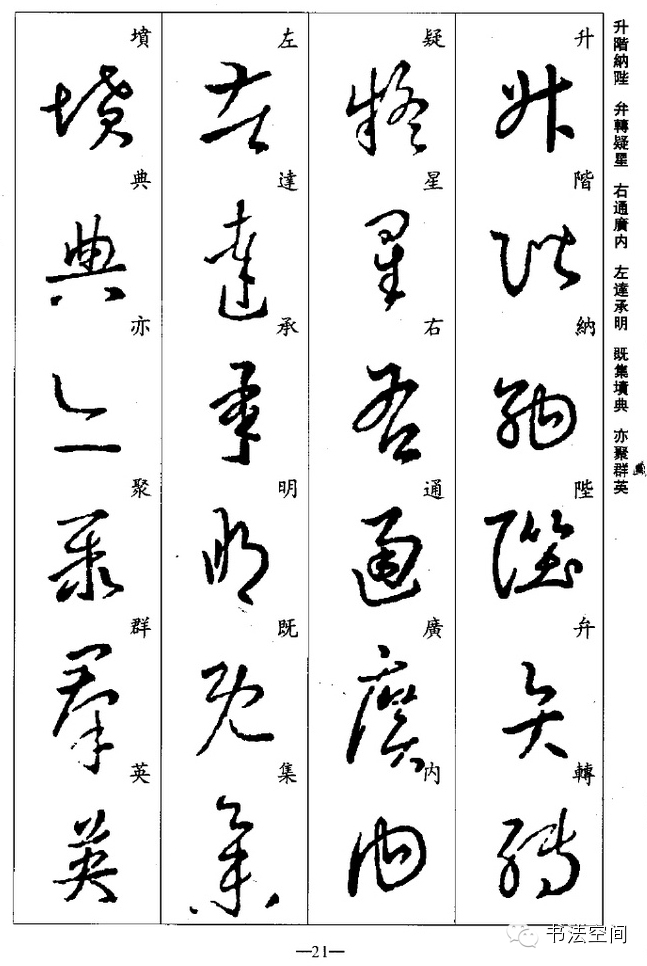 升階納陛 弁轉疑星 右通廣内 左達承明 既集墳典 亦聚群英
升階納陛弁轉
疑星右通廣内
左達承明既集
墳典亦聚群英
—21—
书法空间